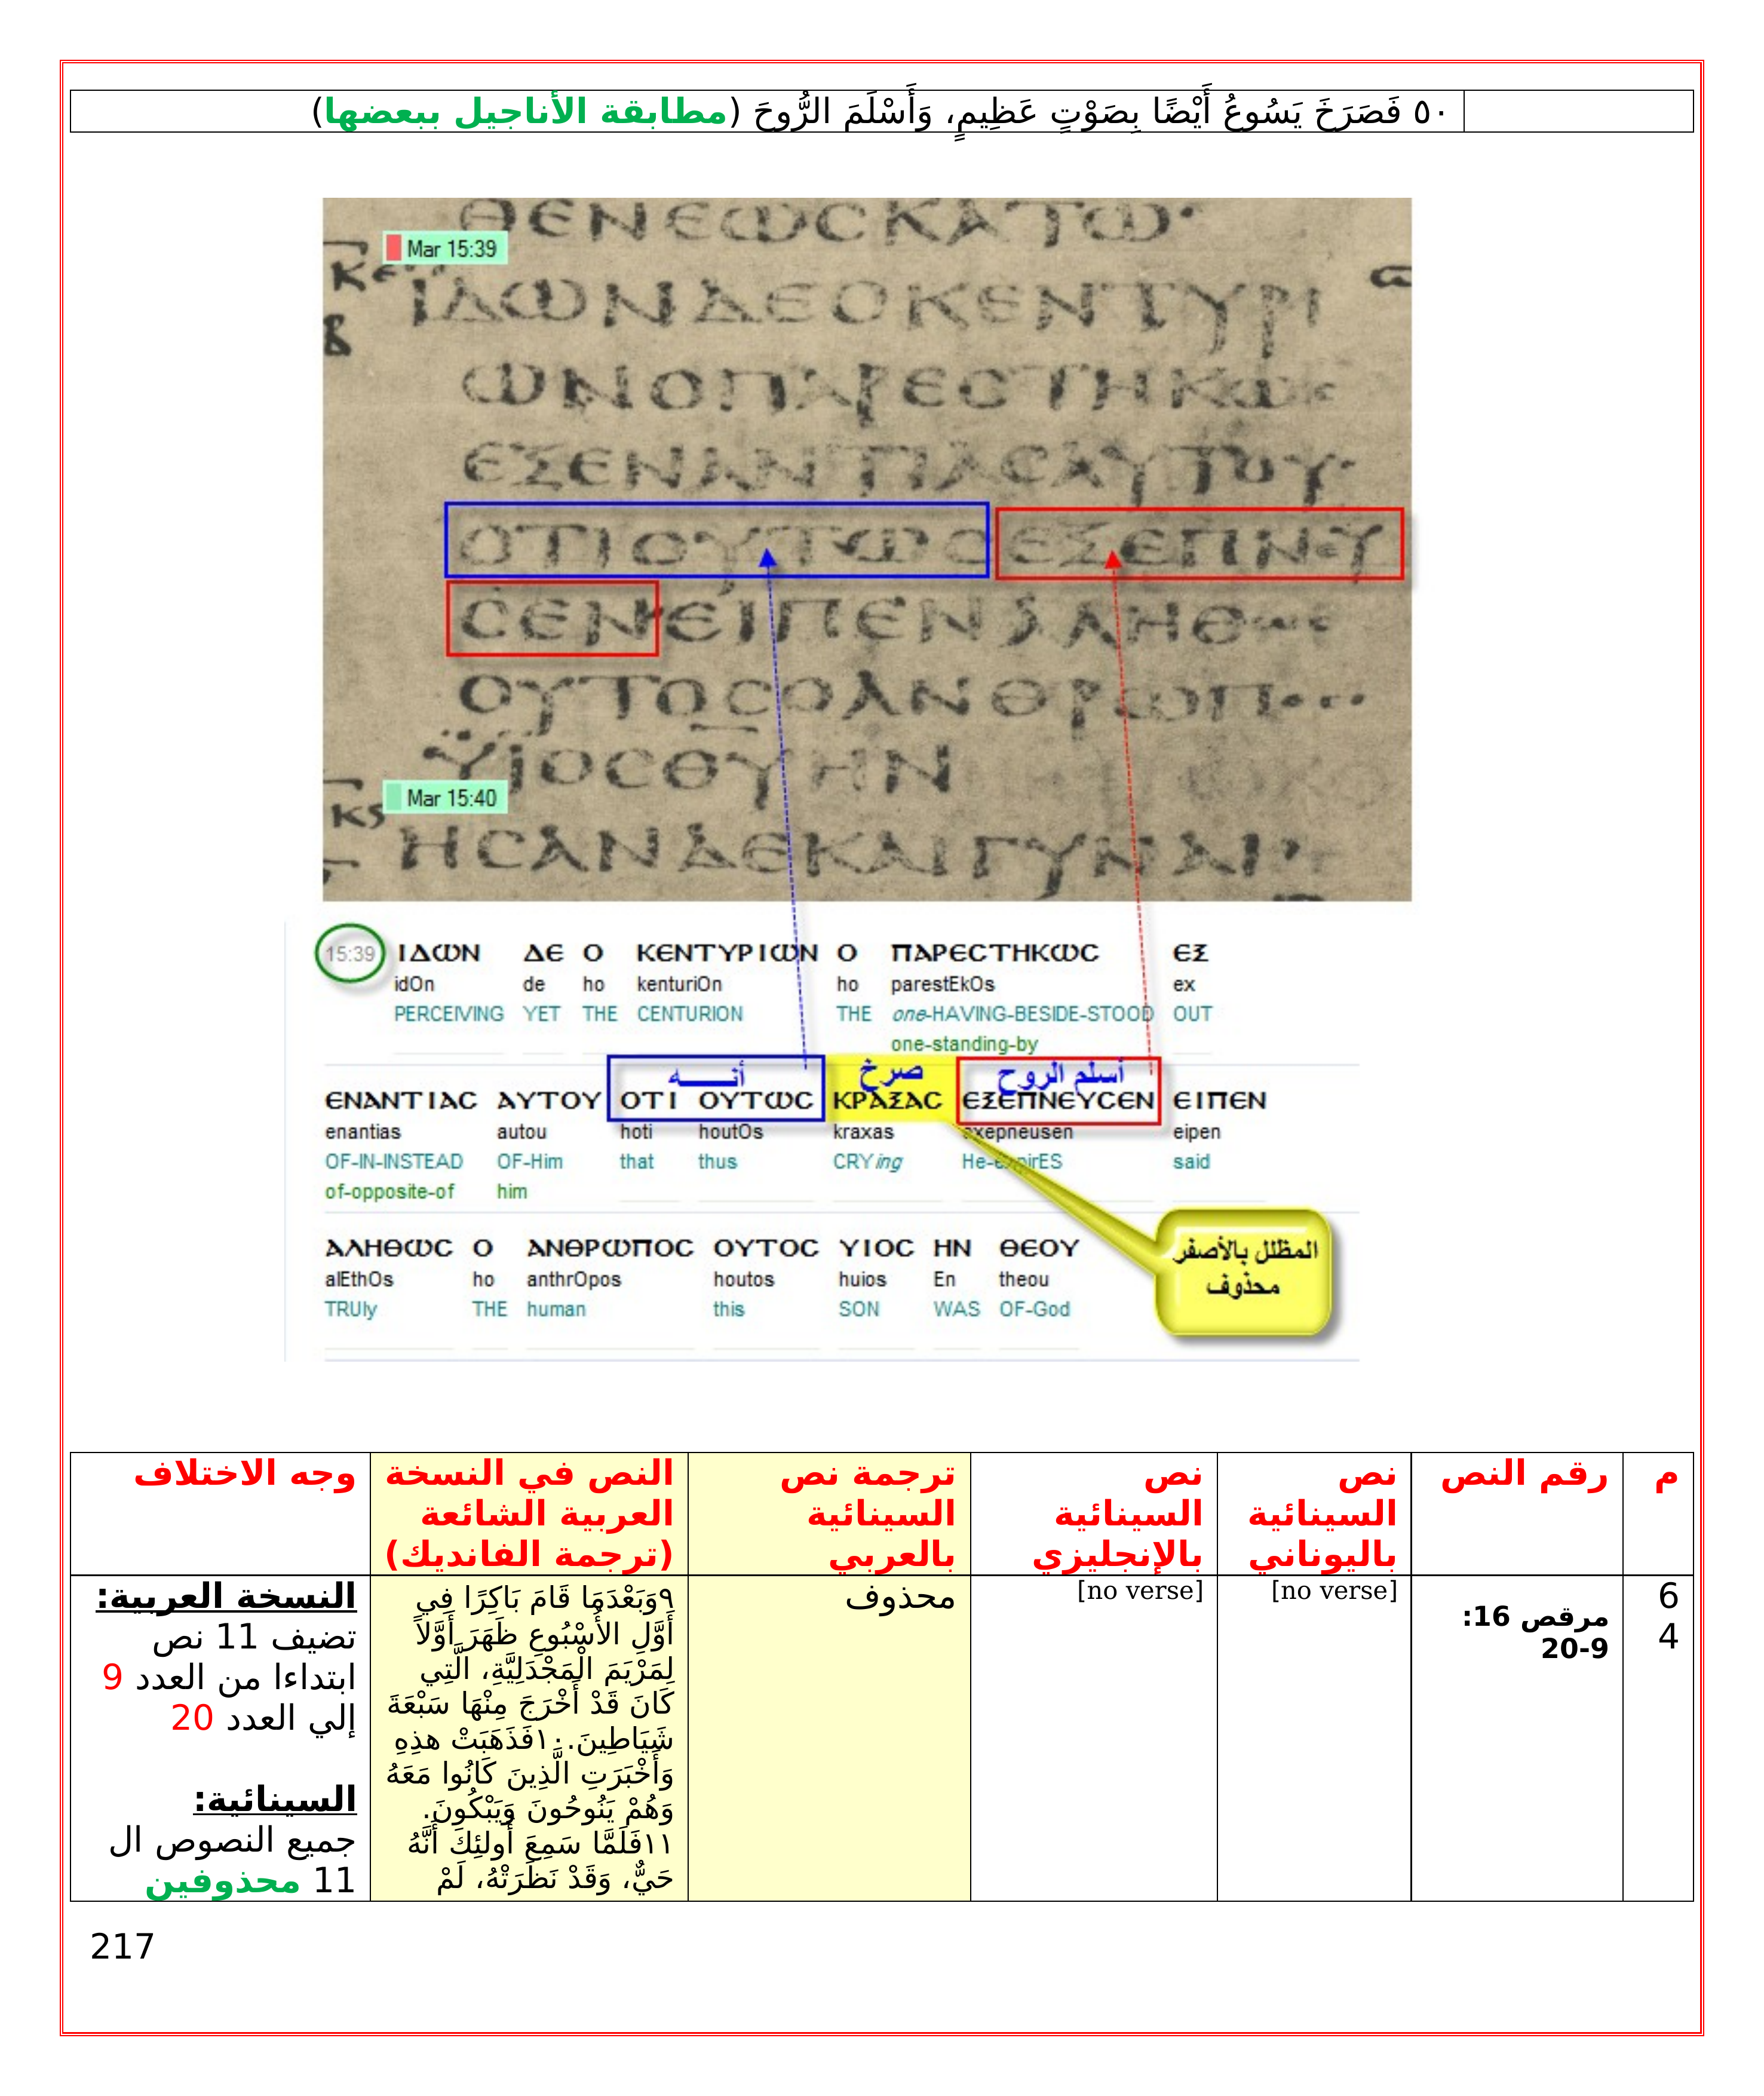 ٥٠ فَصَرَخَ يَسُوعُ أَيْضًا بِصَوْتٍ عَظِيمٍ، وَأَسْلَمَ الرُّوحَ (مطابقة الأناجيل ببعضها)
ΘΕΝΕωϹΚΑΤω·
Mar 15:39
ΙΔωΝΔΕΟΚΕΝΤΥΡΙ
ωΝΟΠΑΡΕϹΤΗΚωϹ
ΕΞΕΝΑΝΤΙΑϹΑΥΤΟΥ·
ΟΤΙΟΥΤωϹΕΞΕΠΝΕΥ
ϹΕΝΕΙΠΕΝΑΛΗΘωϹ
ΟΥΤΟϹΟΑΝΘΡωΠΟϹ
ΥΙΟϹΘΥΗΝ
Mar 15:40
ΗϹΑΝΔΕΚΑΙΓΥΝΑΙ
15:39 ΙΔωΝ ΔΕ Ο ΚΕΝΤΥΡΙωΝ Ο ΠΑΡΕϹΤΗΚωϹ ΕΞ
idOn de ho kenturiOn ho parestEkOs ex
PERCEIVING YET THE CENTURION THE one-HAVING-BESIDE-STOOD OUT
one-standing-by
أنـــه صرخ أسلم الروح
ΕΝΑΝΤΙΑϹ ΑΥΤΟΥ ΟΤΙ ΟΥΤωϹ ΚΡΑΞΑϹ ΕΞΕΠΝΕΥϹΕΝ ΕΙΠΕΝ
enantias autou hoti houtOs kraxas exepneusen eipen
OF-IN-INSTEAD OF-Him that thus CRYing He-expirES said
of-opposite-of him
المظلل بالأصفر
محذوف
ΑΛΗΘωϹ Ο ΑΝΘΡωΠΟϹ ΟΥΤΟϹ ΥΙΟϹ ΗΝ ΘΕΟΥ
alEthOs ho anthrOpos houtos huios En theou
TRUly THE human this SON WAS OF-God
م
رقم النص
نص
السينائية
باليوناني
نص
السينائية
بالإنجليزي
ترجمة نص
السينائية
بالعربي
النص في النسخة
العربية الشائعة
(ترجمة الفانديك)
وجه الاختلاف
6
4
مرقص 16:
9-20
[no verse]
[no verse]
محذوف
٩وَبَعْدَمَا قَامَ بَاكِرًا فِي
أَوَّلِ الأُسْبُوعِ ظَهَرَ أَوَّلاً
لِمَرْيَمَ الْمَجْدَلِيَّةِ، الَّتِي
كَانَ قَدْ أَخْرَجَ مِنْهَا سَبْعَةَ
شَيَاطِينَ.١٠فَذَهَبَتْ هذِهِ
وَأَخْبَرَتِ الَّذِينَ كَانُوا مَعَهُ
وَهُمْ يَنُوحُونَ وَيَبْكُونَ.
١١فَلَمَّا سَمِعَ أُولئِكَ أَنَّهُ
حَيٌّ، وَقَدْ نَظَرَتْهُ، لَمْ
النسخة العربية:
تضيف 11 نص
ابتداءا من العدد 9
إلي العدد 20
السينائية:
جميع النصوص ال
11 محذوفين
217